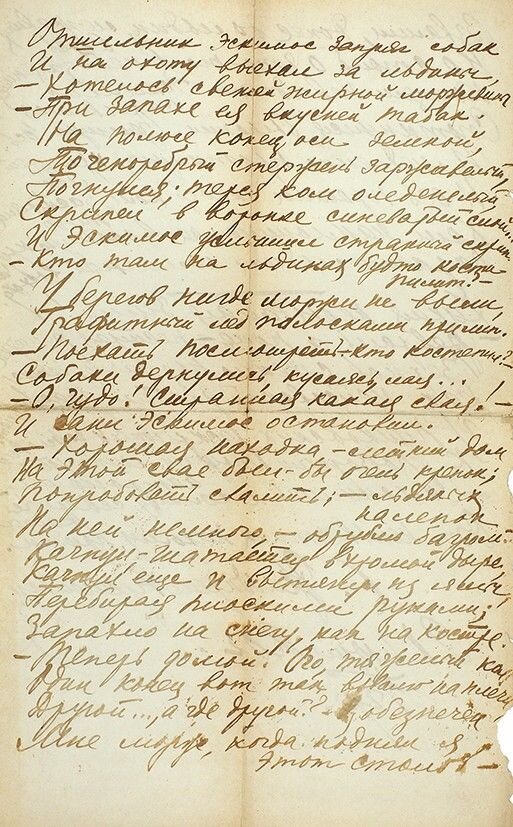 Отшельник эскимос запряг собак
И на охоту выехал за льдины,
– Хотелось свежей жирной моржевины
– При запахе ея вкусней табак.
На полюсе конец оси земной,
Точеноребрый стержень заржавелый,
Погнулся; теряя ком оледенелый
Скрипел в воронке синеватой
И эскимос услышал странный скрип
– Кто там на льдинах будто кость
пилит? –
У берегов нигде моржи не выли,
Графитный лед полосками прилип.
– Поехать посмотреть – кто костепил?
Собаки дернулись, кусаясь, лая...
– О, чудо! Странная какая свая! –
И сани эскимос остановил.
– Хорошая находка – летний дом
На этой свае был-бы очень крепок;
Попробовать свалить; – льдяных
налепок
На ней немного – обрублю багром.
Качнул – шатается в хромой дыре
Качнул еще и вытянул из
Перебирая плоскими руками;
Запахло на снегу, как на костре.
– Теперь домой! Ого, тяжелый
Один конец вот так, взвалю на плечи
Другой..., а где другой? –
Мне морж, когда поднял я
этот столб –